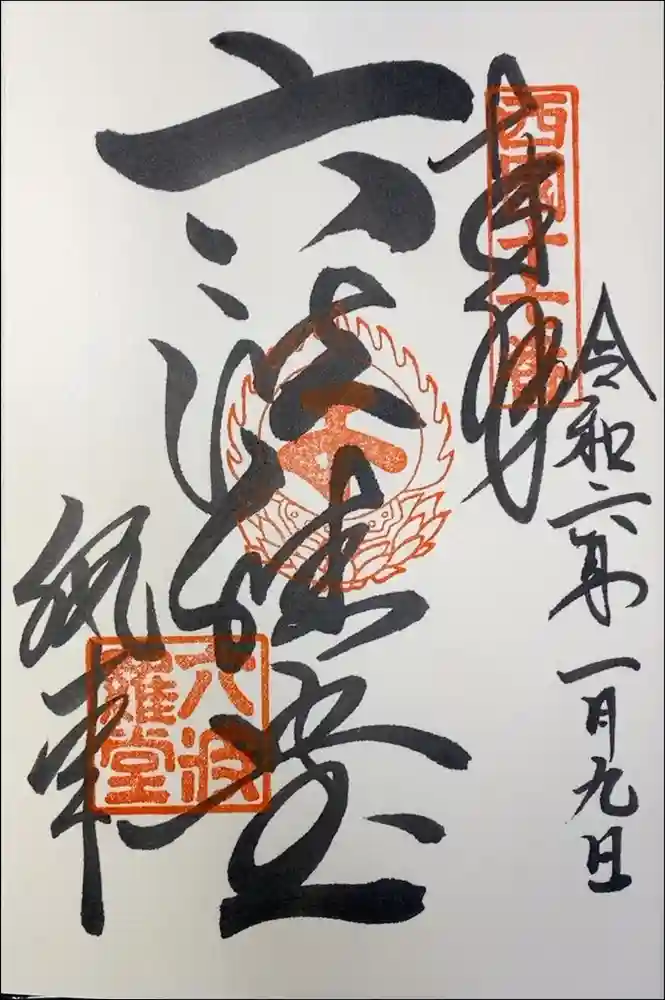 令和六年一月九日
奉拝
西國十七番
六波羅堂
執事
六波
羅堂